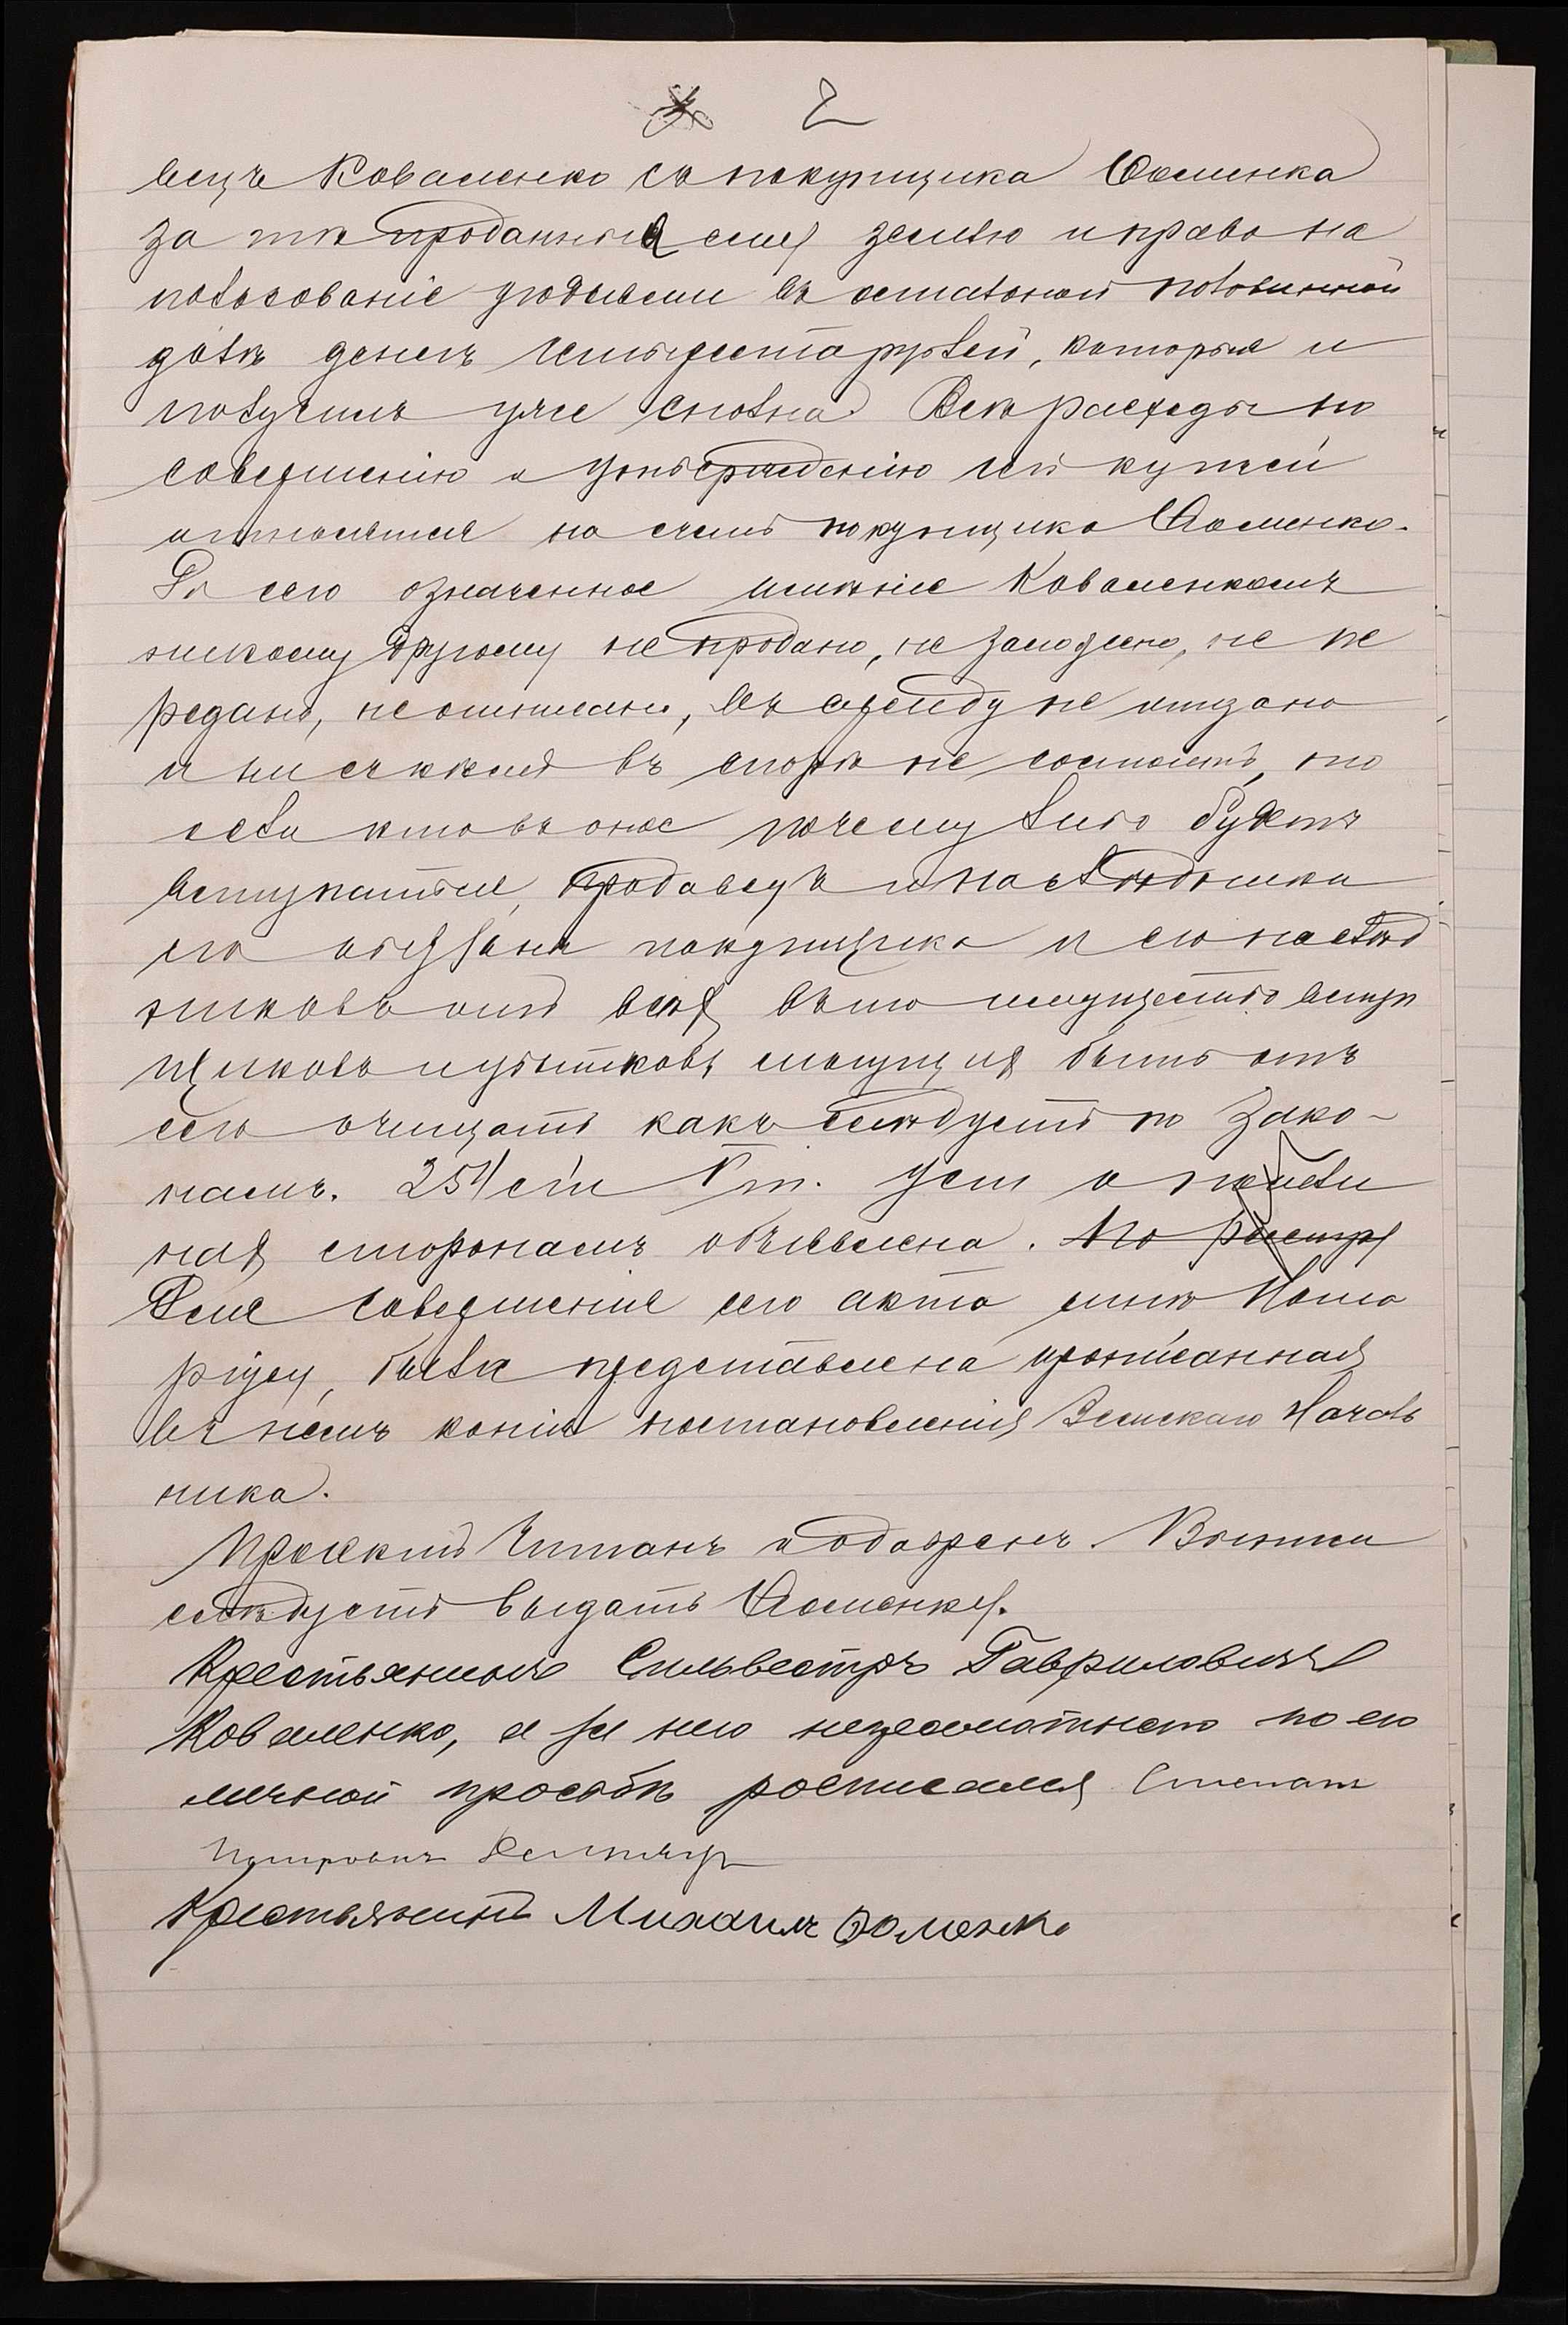 2
вецъ Коваленко съ покупщика Фоменка
за тѣ проданныя ему землю и право на
пользованіе угодьями въ остальной половинной
долѣ денегъ четыреста рублей, которыя и
получилъ уже сполна. Всѣ расходы по
совершенію и утвержденію сей купчей
относятся на счетъ покупщика Фоменко.
До сего означенное имѣніе Коваленкомъ
никому другому не продано, не заложено, не пе
редано, не описано, въ аренду не отдано
и ни съ кѣмъ въ спорѣ не состоитъ, но
если кто въ оное почему либо будетъ
вступаться, продавецъ и наслѣдники
его обязаны покупщика и его наслѣд
никовъ отъ всѣхъ въ то имущество вступ
щиковъ и убытковъ могущихъ быть отъ
сего очищать какъ слѣдуетъ по зако-
намъ. 254 ст. V т. Уст о пошли
нахъ сторонамъ объявлена. По реестру
Для совершенія сего акта мнѣ Нота
ріусу, была представлена прописанная
въ немъ копія постановленія Земскаго Началь
ника.
Проектъ читанъ и одобренъ. Выпись
слѣдуетъ выдать Фоменку.
Крестьянинъ Сильвестръ Гавриловичъ
Коваленко, а за него неграмотнаго по его
личной просьбѣ росписался Степанъ
Петровичъ
Крестьянинъ Михаилъ Фоменко